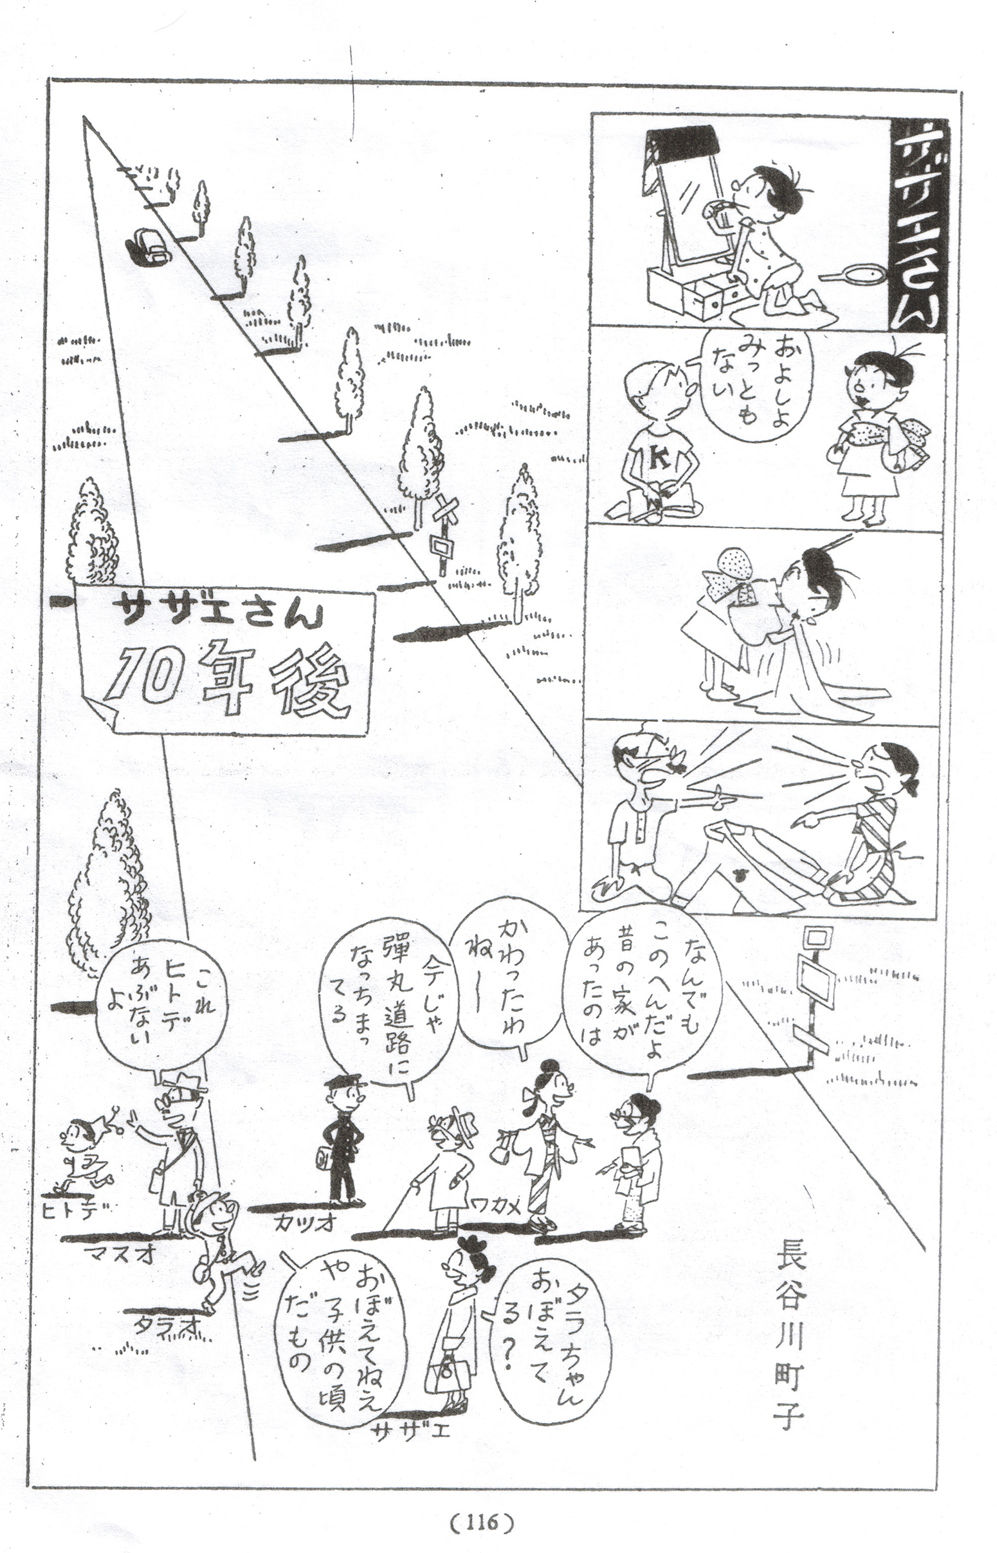 サザエさん
およしよ
みっとも
ない
K
サザエさん
10年後
なんでも
このへんだよ
昔の家が
あったのは
かわったわ
ね〜
今じゃ
彈丸道路に
なっちまっ
てる
これ
ヒトデ
あぶない
よ
ヒトデ
マスオ
タラオ
カツオ
ワカメ
タラちゃん
おぼえて
る?
おぼえてねえ
や子供の頃
だもの
サザエ
長谷川町子
(116)